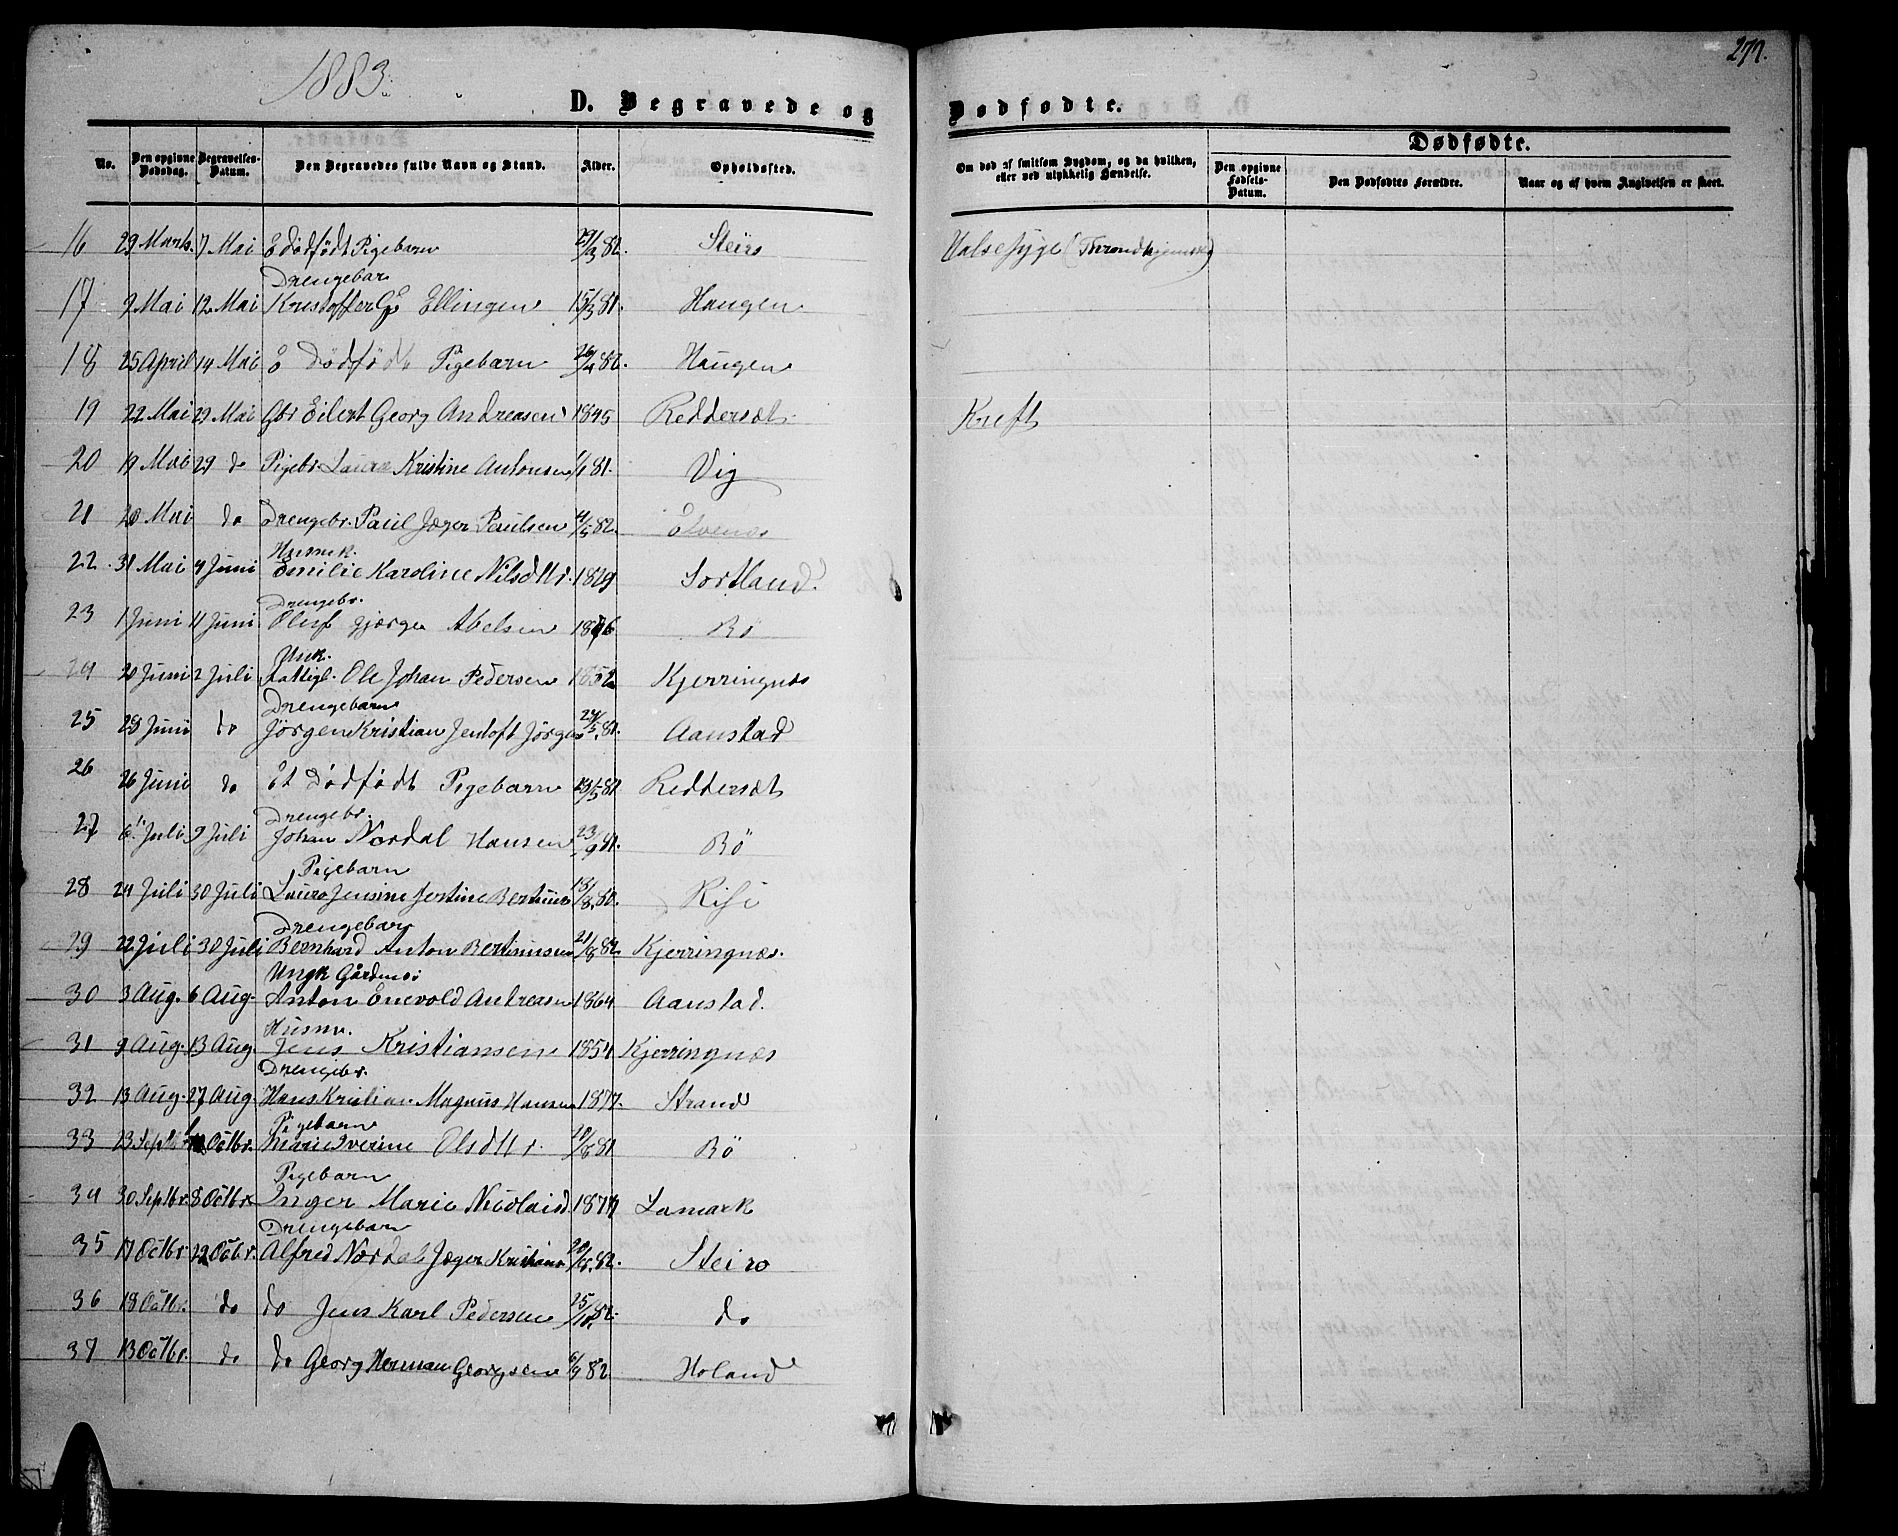 277.
1883.
D. Begravede og Dødfødte.
Dødfødte.
No.
Den opgivne Dødsdag.
Begravelses-Datum.
Den Begravedes fulde Navn og Stand.
Alder.
Opholdssted.
Om død af smitsom Sygdom, og da hvilken, eller ved ulykkelig Hændelse.
Den opgivne Fødsels-Datum.
Den Dødfødtes Forældre.
Naar og af hvem Angivelsen er skeet.
16 29 Marts. 7 Mai E dødfødt Pigebarn 29/3 82. Steiro Halsesyge (Throndhjemsk)
Drengebar
17 9 Mai 12 Mai Kristoffer Ellingen 15/3 81. Haugen
18 25 April 14 Mai E Dødfødt Pigebarn 26/4 82. Haugen
19 22 Mai 29 Mai Gbr Eilert Georg Andreasen 1845 Reddersæt Kreft
20 19 Mai 29 do Pigebr. Laura Kristine Antonsen 81. Vig
21 20 Mai do Drengebr. Paul Jæger Paulsen 4/5 82. Åkvenæs
Husmk.
22 31 Mai 4 Juni Emilie Karoline Nilsdtr. 1829 Sortland
Drengebr.
23 1 Juni 11 Juni Oluf Gjørge Abelsen 1876 Bö
Unk.
24 20 Juni 2 Juli Fattigl. Ole Johan Pedersen 1852 Kjerringnæs
Drengebarn
25 28 Juni do Jörgen Kristian Jentoft Jörgens 24/5 81. Aanstad
26 26 Juni do Et Dödfödt Pigebarn 29/5 81 Reddersæt
Drengebr.
27 6 Juli 9 Juli Johan Nordal Hansen 23/9 81. Bö
Pigebarn
28 24 Juli 30 Juli Laura Jensine Jertine Bertins 13/8. 80. Rise
Drengebarn
29 22 Juli 30 Juli Bernhard Anton Bertinusen 21/8 82 Kjerringnæs.
Ungk Gårdmsö
30 3 Aug. 6 Aug. Anton Enevold Andreasen 1864 Aanstad.
Husmn.
31 9 Aug. 13 Aug. Jens Kristiansen 1854 Kjerringnæs
Drengebr.
32 13 Aug. 27 Aug. Hans Kristian Magnus Hansen 1877. Strand
Pigebarn
33 23 Septbr. Octbr. Marie Iverine Olsdtr. 81 Bö
Pigebarn
34 30 Septbr. 8 Octbr. Inger Marie Nicolaisd 1877 Lamark
Drengebarn
35 17 Octbr. 22 Octbr. Alfred Nordal Jæger Kristians 20/8. 82. Steiro
36 18 Octbr. do do Jens Karl Pedersen 25/10. 82. do
37 13 Octbr. do do Georg Herman Georgsen 6/9 82 Holand